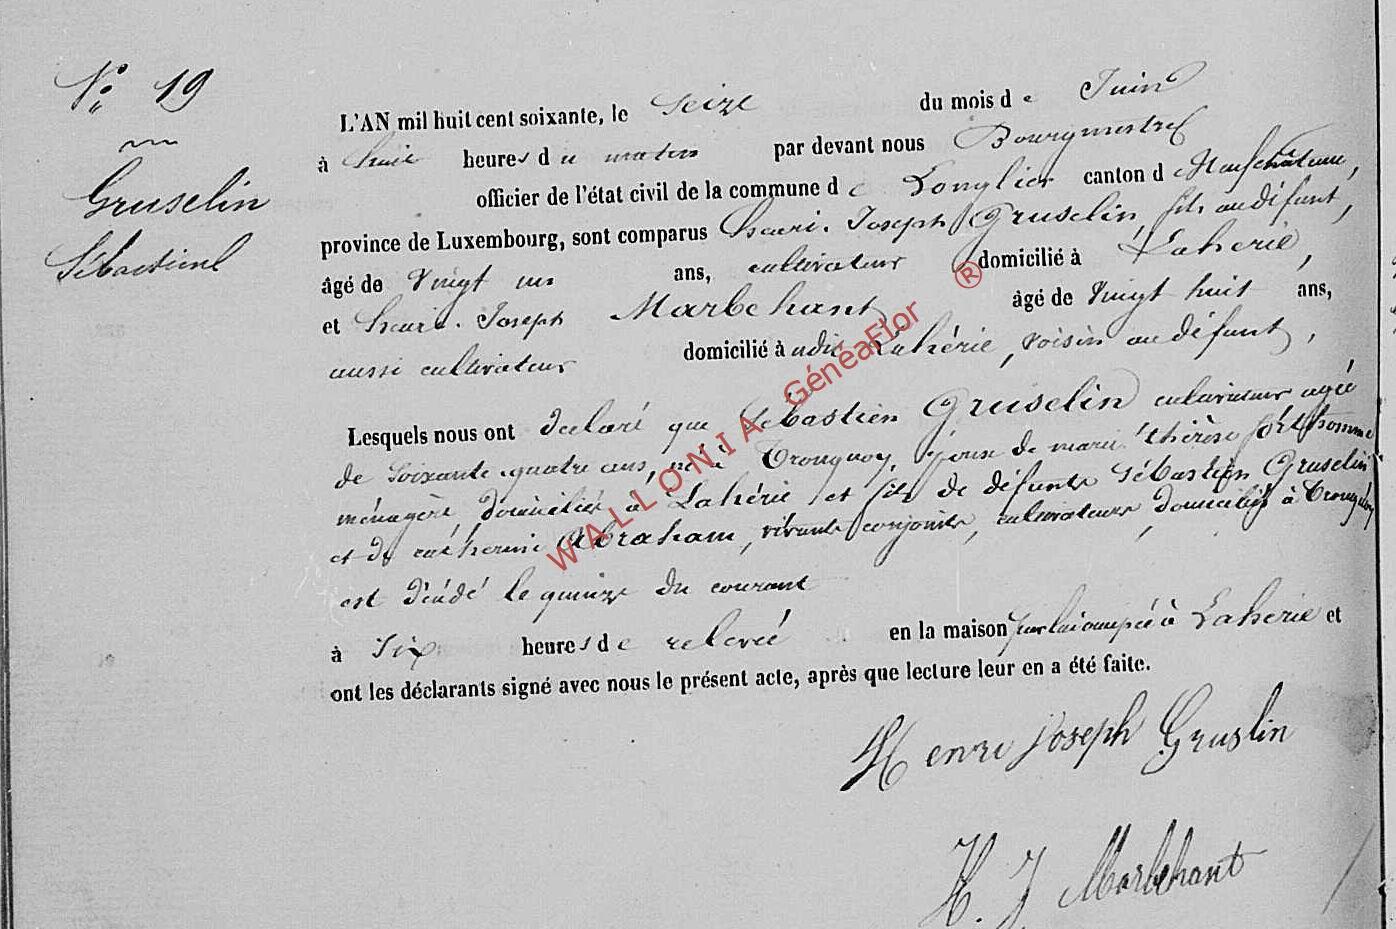 N° 19
Gruselin
Sébastien
L'AN mil huit cent soixante, le seize du mois de Juin
à huit heures du matin par devant nous Bourgmestre
officier de l'état civil de la commune de Longlier canton d Neufchâteau,
province de Luxembourg, sont comparus henri. Joseph Gruselin, fils au défunt,
âgé de vingt un ans, cultivateur domicilié à Lahérie,
et henri. Joseph Marbehant âgé de vingt huit ans,
aussi cultivateur domicilié à udit Lahérie, voisin au défunt,
Lesquels nous ont declaré que Sébastien Gruselin cultivateur agée
de soixante quatre ans, né à Tronquoy, époux de marie thérèse
ménagère, domiciliés à Lahérie et fils de défunts Sébastien Gruselin
et de catherine Abraham, vivants conjoints, cultivateurs, domiciliés à Tronquoy
est décédé le quinze du courant
à six heures de relevée en la maison par lui occupée à Laherie et
ont les déclarants signé avec nous le présent acte, après que lecture leur en a été faite.
Henri Joseph Gruslin
H. J Marbehant
WALLONIA GénéaFlor ®